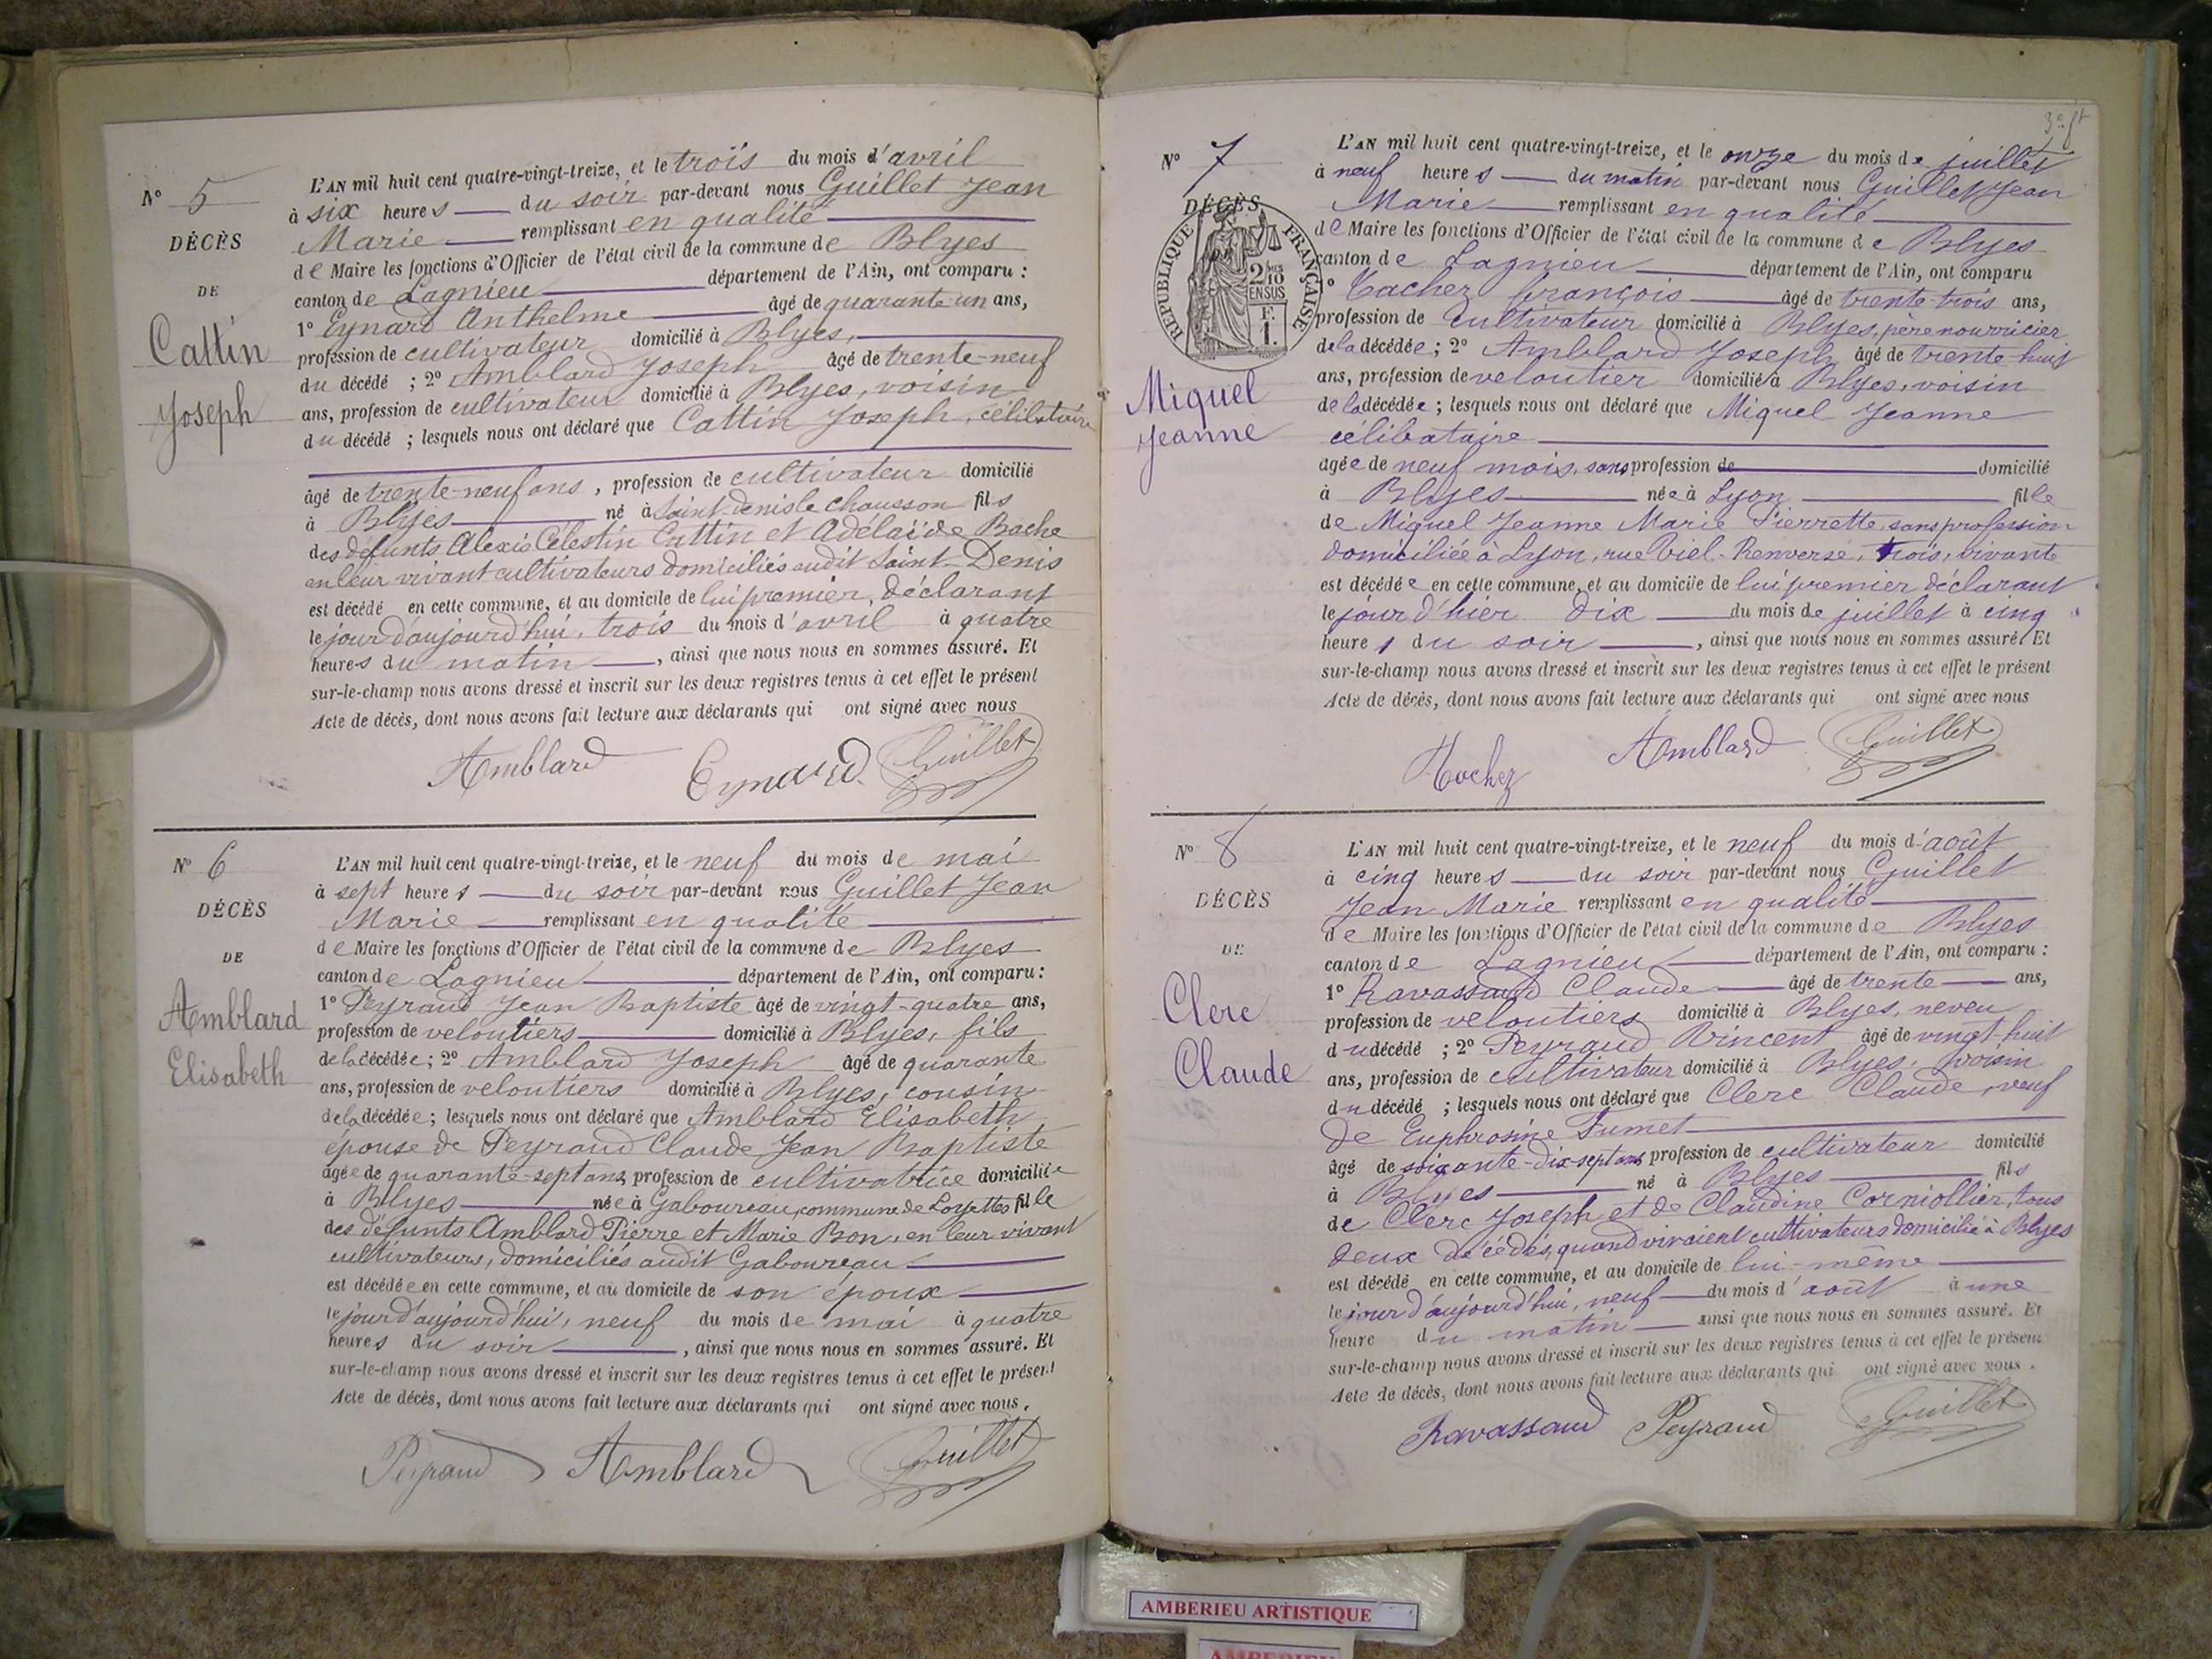 N° 5
DÉCÈS
DE
Cattin
Joseph
L'AN mil huit cent quatre-vingt-treize, et le trois du mois d'avril
à six heures du soir par-devant nous Guillet Jean
Marie remplissant en qualité
de Maire les fonctions d'Officier de l'état civil de la commune de Blyes
canton de Lagnieu département de l'Ain, ont comparu :
1° Eynard Anthelme âgé de quarante un ans,
profession de cultivateur domicilié à Blyes,
du décédé ; 2° Amblard Joseph âgé de trente-neuf
ans, profession de cultivateur domicilié à Blyes, voisin
du décédé ; lesquels nous ont déclaré que Cattin Joseph, célibataire
âgé de trente-neuf ans, profession de cultivateur domicilié
à Blyes né à Saint-Denis le chausson fils
des défunts Alexis Célestin Cattin et Adélaïde Bache
en leur vivant cultivateurs domiciliés audit Saint-Denis
est décédé en cette commune, et au domicile de lui premier, déclarant
le jour d'aujourd'hui, trois du mois d'avril à quatre
heures du matin, ainsi que nous nous en sommes assuré. Et
sur-le-champ nous avons dressé et inscrit sur les deux registres tenus à cet effet le présent
Acte de décès, dont nous avons fait lecture aux déclarants qui ont signé avec nous
Amblard Eynard Guillet
N° 6
DÉCÈS
DE
Amblard
Elisabeth
L'AN mil huit cent quatre-vingt-treize, et le neuf du mois de mai
à sept heures du soir par-devant nous Guillet Jean
Marie remplissant en qualité
de Maire les fonctions d'Officier de l'état civil de la commune de Blyes
canton de Lagnieu département de l'Ain, ont comparu :
1° Peyraud Jean Baptiste âgé de vingt-quatre ans,
profession de veloutiers domicilié à Blyes, fils
de la décédée ; 2° Amblard Joseph âgé de quarante
ans, profession de veloutiers domicilié à Blyes, cousin
de la décédée ; lesquels nous ont déclaré que Amblard Elisabeth
épouse de Peyraud Claude Jean Baptiste
âgée de quarante-sept ans, profession de cultivatrice domiciliée
à Blyes née à Gaboureau, commune de Loyettes fille
des défunts Amblard Pierre et Marie Bon, en leur vivant
cultivateurs, domiciliés audit Gaboureau
est décédée en cette commune, et au domicile de son époux
le jour d'aujourd'hui, neuf du mois de mai à quatre
heures du soir, ainsi que nous nous en sommes assuré. Et
sur-le-champ nous avons dressé et inscrit sur les deux registres tenus à cet effet le présent
Acte de décès, dont nous avons fait lecture aux déclarants qui ont signé avec nous.
Peyraud Amblard Guillet
N° 7
DÉCÈS
RÉPUBLIQUE FRANÇAISE
2/10 EN SUS
F. 1.
Miquel
Jeanne
L'AN mil huit cent quatre-vingt-treize, et le onze du mois de juillet
à neuf heures du matin par-devant nous Guillet Jean
Marie remplissant en qualité
de Maire les fonctions d'Officier de l'état civil de la commune de Blyes
canton de Lagnieu département de l'Ain, ont comparu
1° François âgé de trente-trois ans,
profession de cultivateur domicilié à Blyes, père nourricier
de la décédée ; 2° Amblard Joseph âgé de trente-huit
ans, profession de veloutier domicilié à Blyes, voisin
de la décédée ; lesquels nous ont déclaré que Miquel Jeanne
célibataire
âgée de neuf mois, sans profession de domicilié
à Blyes née à Lyon fille
de Miquel Jeanne Marie Pierrette, sans profession
domiciliée à Lyon, rue Viel-Renversé, trois, vivante
est décédée en cette commune, et au domicile de lui premier déclarant
le jour d'hier dix du mois de juillet à cinq
heures du soir, ainsi que nous nous en sommes assuré. Et
sur-le-champ nous avons dressé et inscrit sur les deux registres tenus à cet effet le présent
Acte de décès, dont nous avons fait lecture aux déclarants qui ont signé avec nous
Amblard Guillet
N° 8
DÉCÈS
DE
Clerc
Claude
L'AN mil huit cent quatre-vingt-treize, et le neuf du mois d'août
à cinq heures du soir par-devant nous Guillet
Jean Marie remplissant en qualité
de Maire les fonctions d'Officier de l'état civil de la commune de Blyes
canton de Lagnieu département de l'Ain, ont comparu :
1° Ravassaud Claude âgé de trente ans,
profession de veloutiers domicilié à Blyes, neveu
du décédé ; 2° Peyraud Vincent âgé de vingt huit
ans, profession de cultivateur domicilié à Blyes, voisin
du décédé ; lesquels nous ont déclaré que Clerc Claude, veuf
de Euphrosine Fumet
âgé de soixante-dix-sept ans, profession de cultivateur domicilié
à Blyes né à Blyes fils
de Clerc Joseph et de Claudine Corniollier, tous
deux décédés, quand vivaient cultivateurs domicilié à Blyes
est décédé en cette commune, et au domicile de lui-même
le jour d'aujourd'hui, neuf du mois d'août à une
heure du matin ainsi que nous nous en sommes assuré. Et
sur-le-champ nous avons dressé et inscrit sur les deux registres tenus à cet effet le présent
Acte de décès, dont nous avons fait lecture aux déclarants qui ont signé avec nous.
Ravassaud Peyraud Guillet
AMBERIEU ARTISTIQUE
AMBERIEU